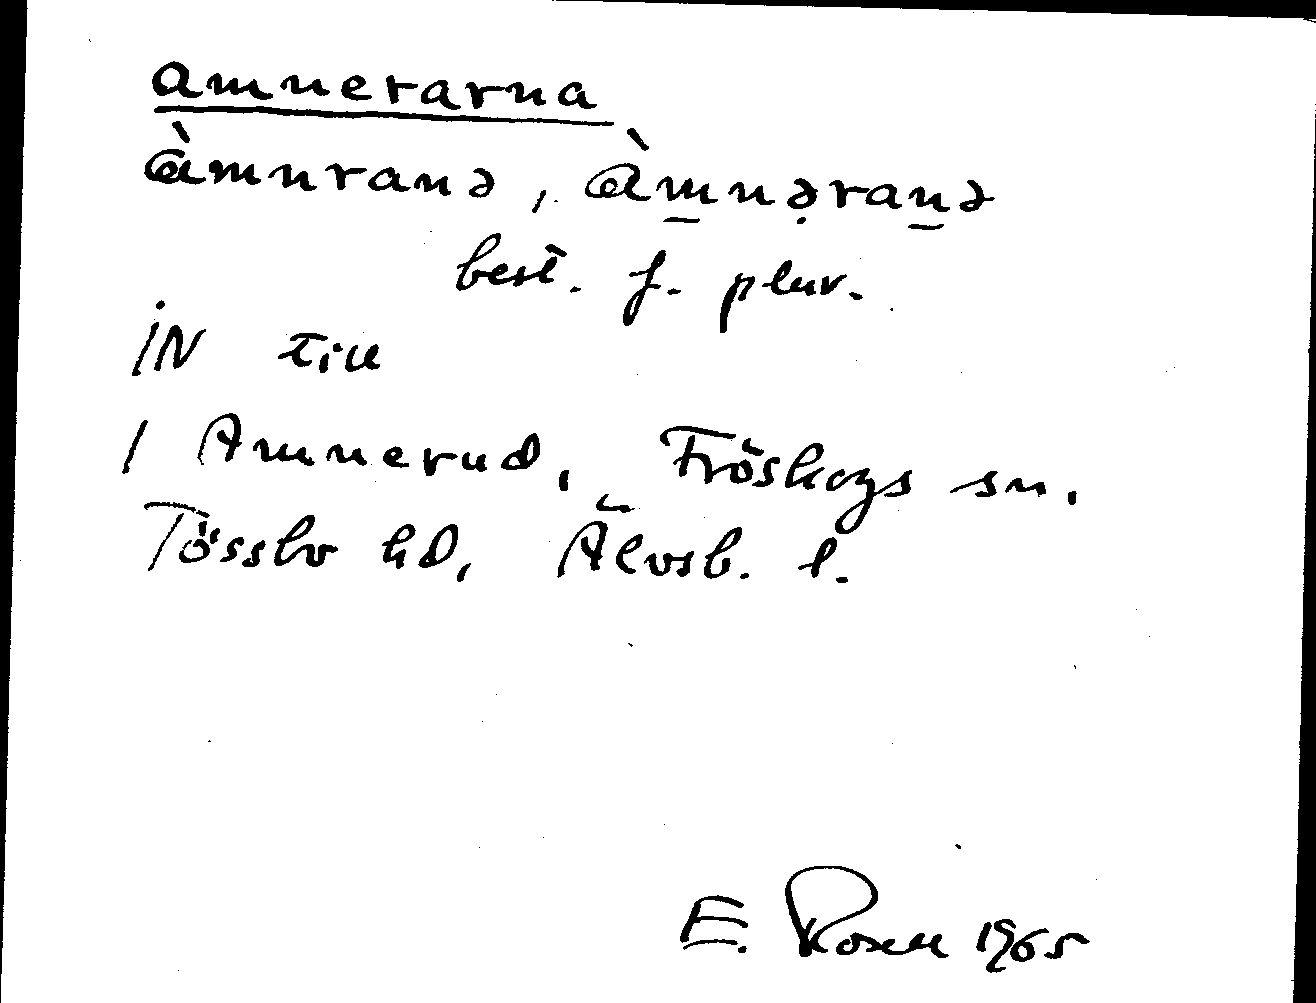 amnerarna
àmnranə, àm̱nə̣raṉə
best. f. plur.
IN till
1 Amnerud, Fröskogs sn,
Tössbo hd, Älvsb. l.
E. Rosell 1965